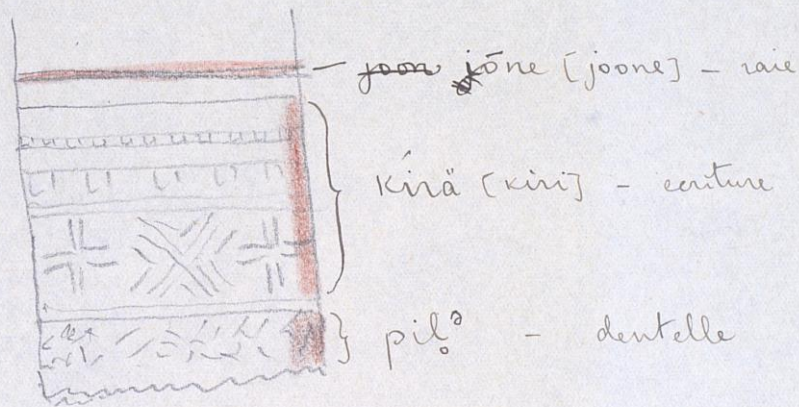 — joon jōne [joone] – raie
Kírä [kiri] – ecriture
pilə̥ – dentelle